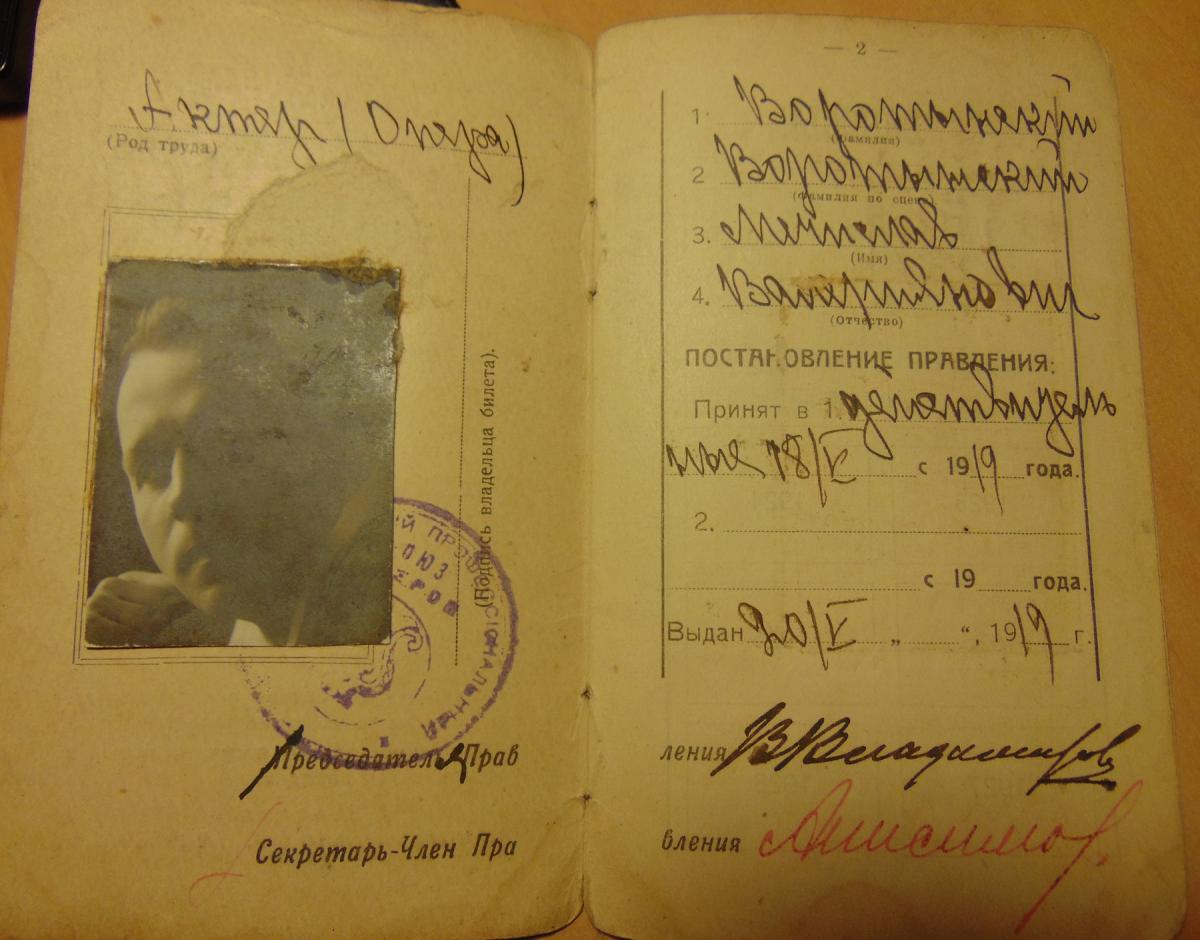 Актер (Опера)
(Род труда)
(Подпись владельца билета).
Председатель Прав
Секретарь-Член Пра
— 2 —
1. Воротынский
(Фамилия)
2 Воротынский
(Фамилия по сцене)
3. Мечислав
(Имя)
4. Валериянович
(Отчество)
ПОСТАНОВЛЕНИЕ ПРАВЛЕНИЯ:
Принят в 1. действитель
ные 18/V с 1919 года.
2.
с 19 года.
Выдан 20/V „ “, 1919 г.
ления ВВладимиров
вления Анисимов